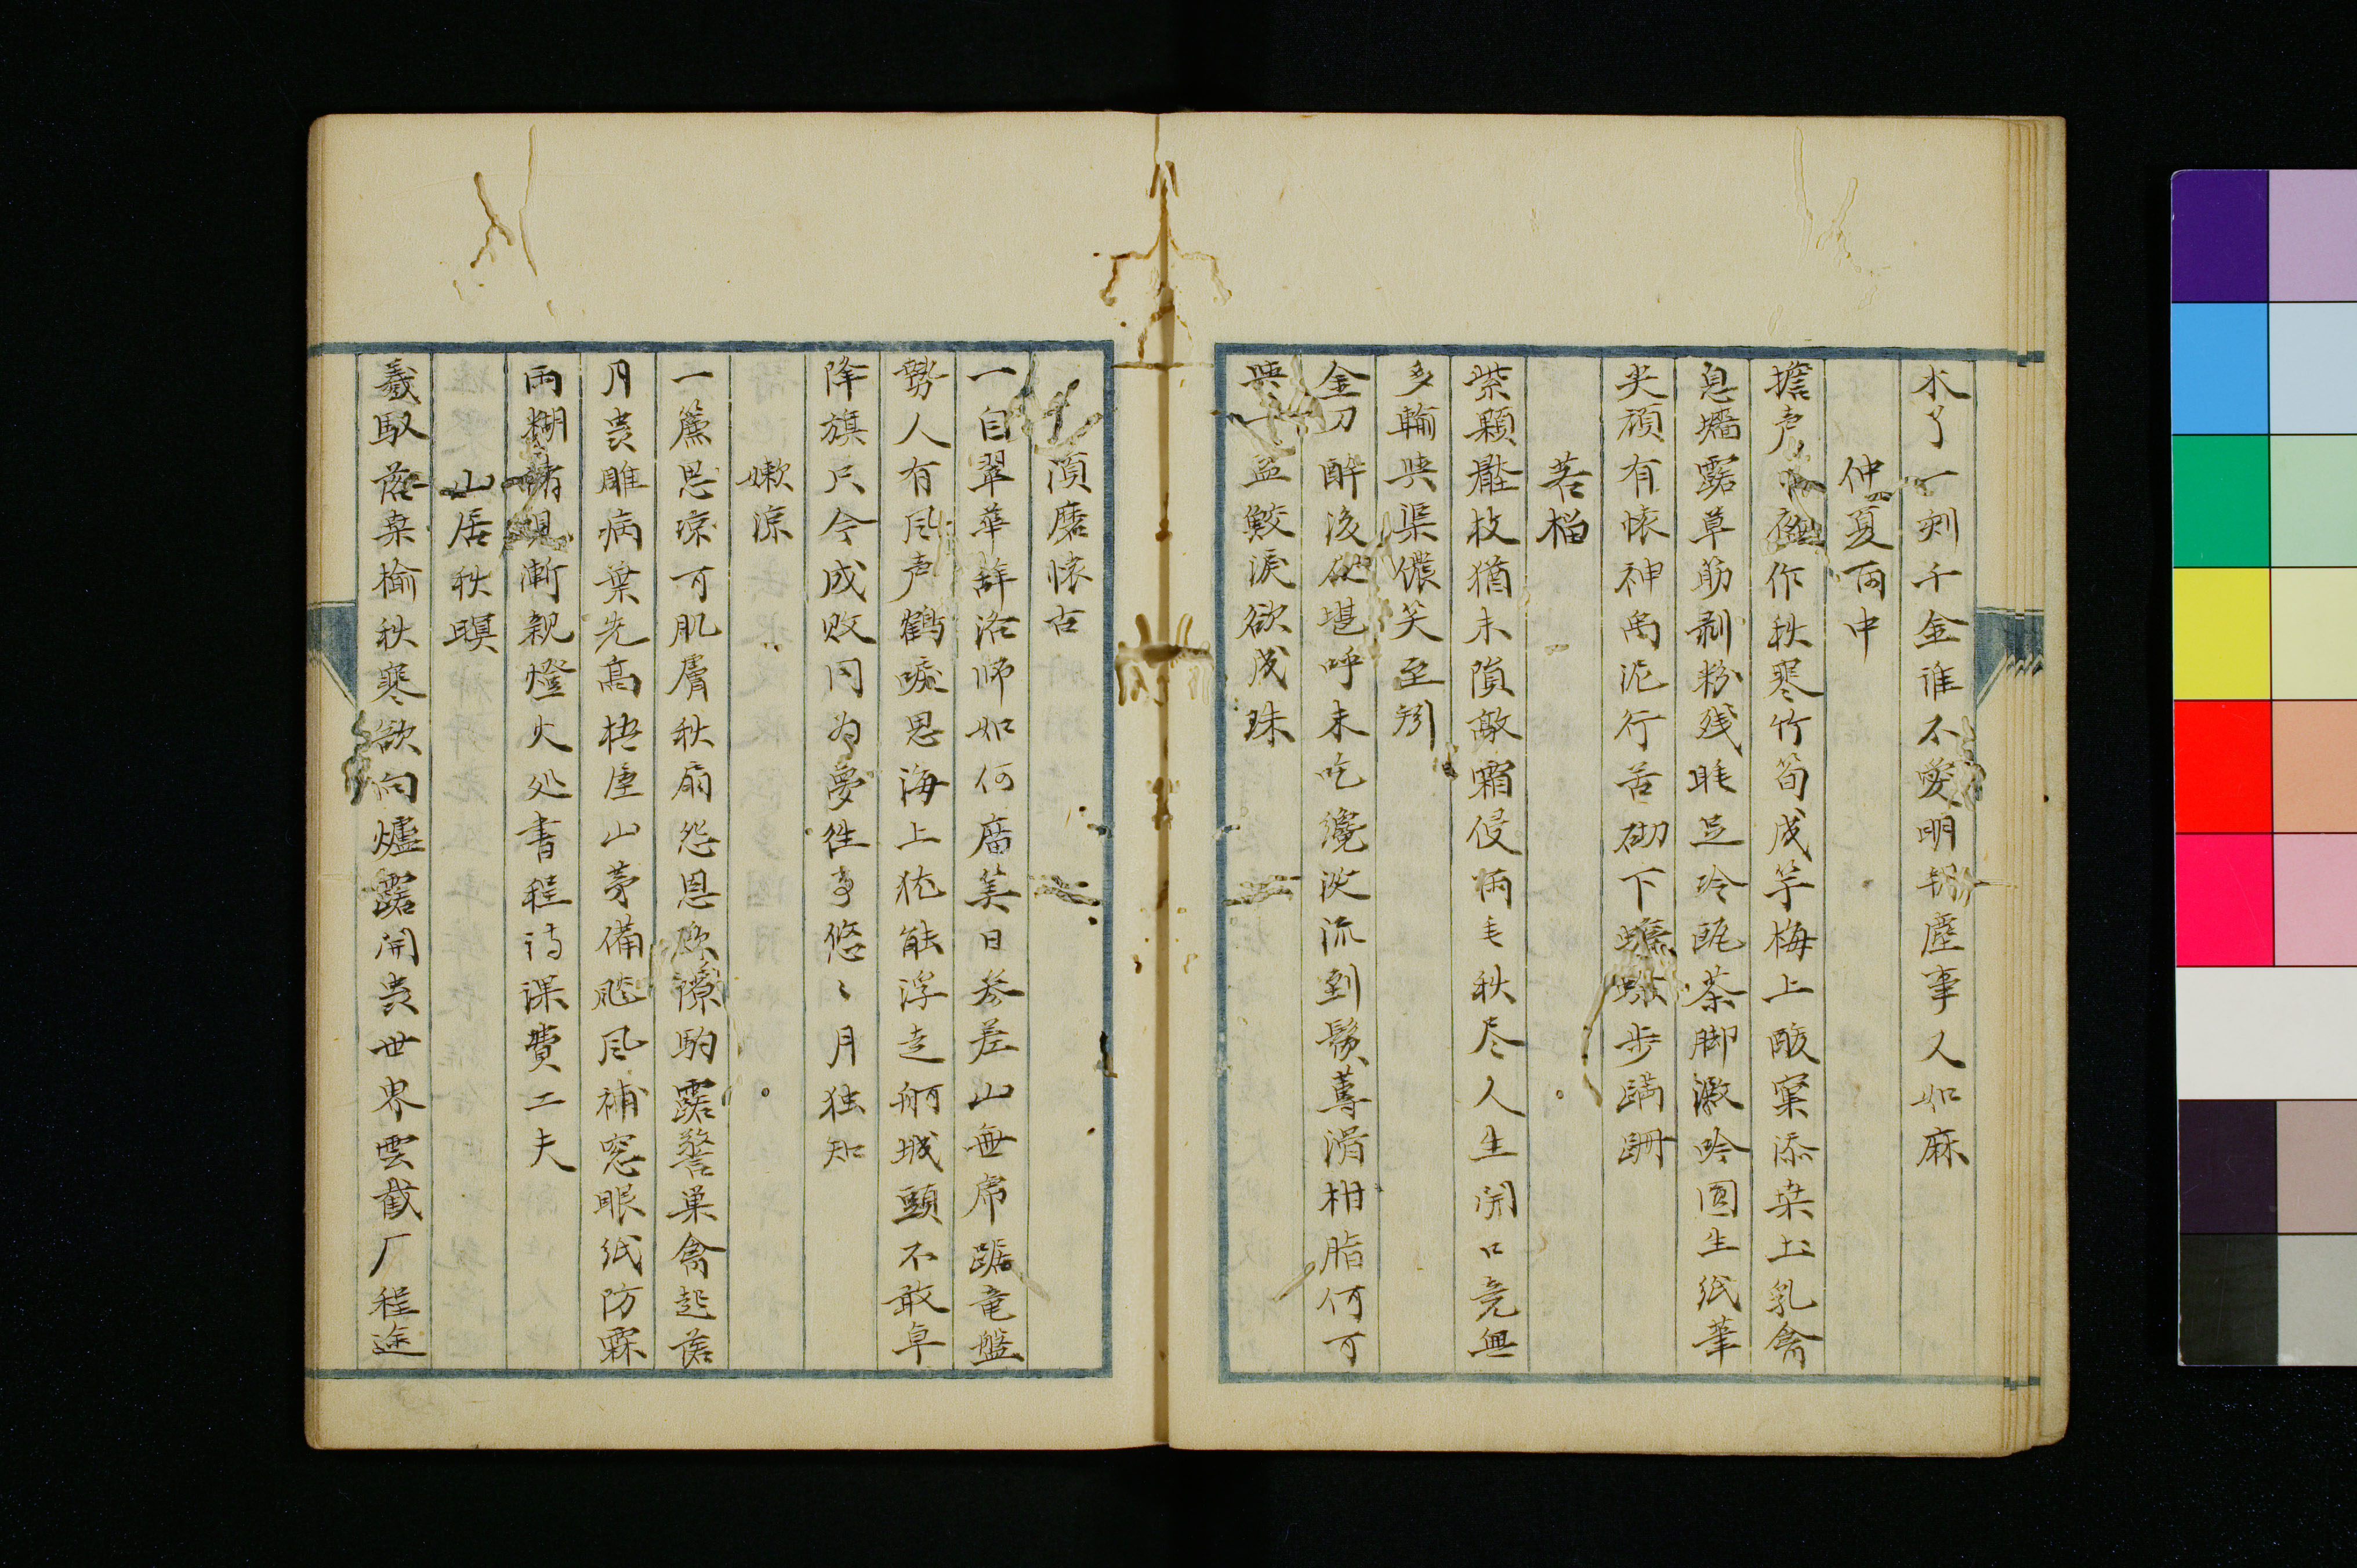 水了一刻千金誰不愛明朝塵事人如麻
仲夏雨中
擔声入夜作秋寒竹筍成竿梅上酸窠添桒土乳禽
息墻露草筋剥粉残眠足冷甌茶脚漱吟圓生紙筆
尖頑有悋神禹泥行苦砌下蟾蜍步蹣跚
若榴
紫顆離枝猶未隕敵霜侵柄毛秋尽人生開口竟無
多輸與渠儂笑至矧
金刀酔後砍堪呼未吃纔涎流到鬚蓴滑柑脂何可
與一盆鮫涙欲成珠
須磨懐古
一自翠華辞洛師如何廣美日参差山無席踞竜盤
勢人有風声鶴唳思海上犹能浮走舸城頭不敢卓
降旗只今成敗同為夢徃事悠〻月独知
嫩涼
一簾恩凉可肌膚秋扇怨恩原隙駒露警巣禽起落
月喪雕病葉先高梧屋山茅備颱風補窓眼紙防霖
雨糊硯漸親燈火処書程詩課費工夫
山居秋暝
羲馭落桒楡秋寒欲向爐露開喪世界雲截厂程途